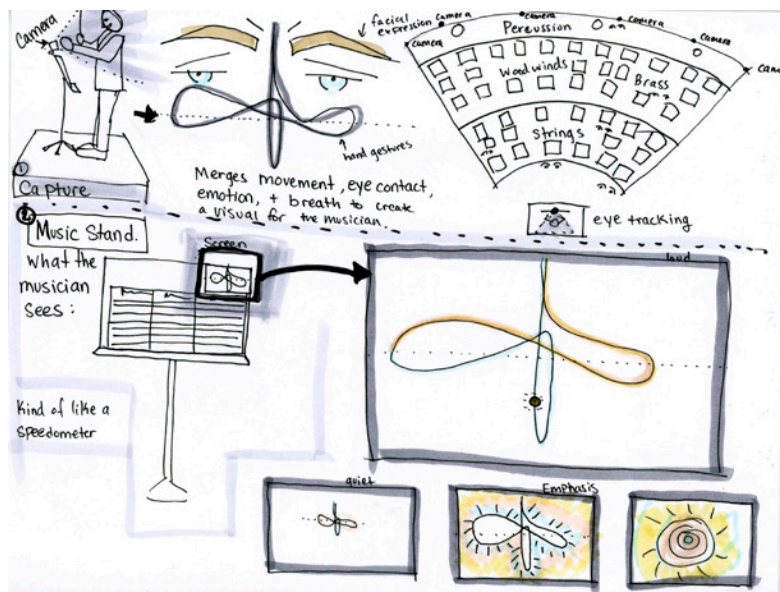 Camera
facial
expression
camera
camera
camera
camera
camera
Cam
Percussion
Woodwinds
Brass
Strings
hand gestures
1
Capture
Merges movement, eye contact,
emotion, + breath to create
a visual for the musician.
eye tracking
2
Music Stand.
what the
musician
sees:
Screen
loud
Kind of like a
speedometer
quiet
Emphasis